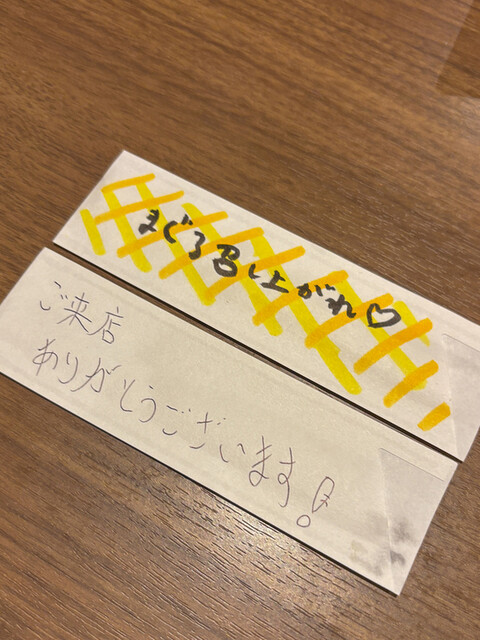 まぐろ召し上がれ♡
ご来店
ありがとうございます!